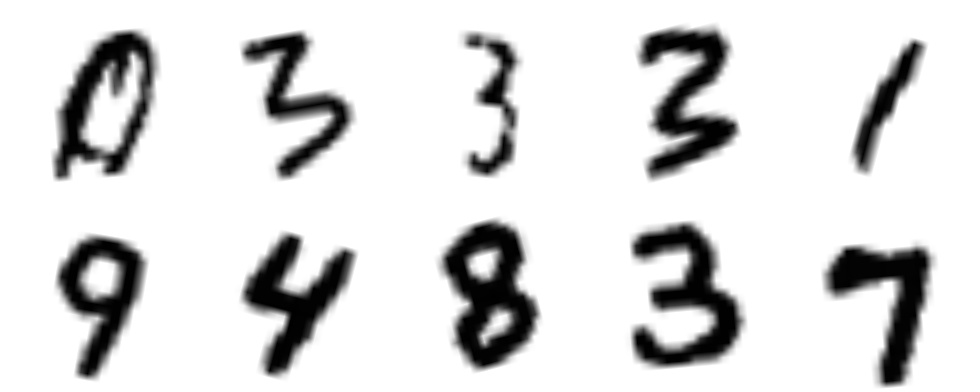 0 3 3 3 1
9 4 8 3 7